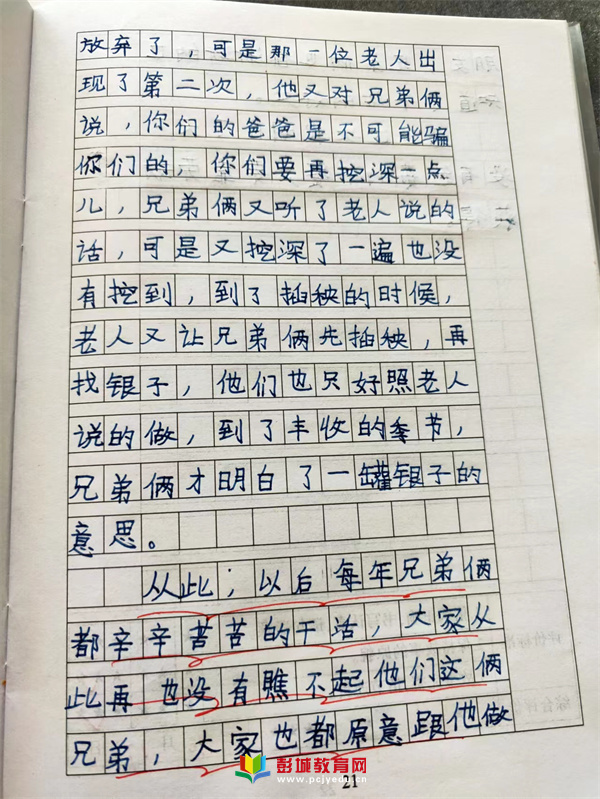 放弃了，可是那一位老人出
现了第二次，他又对兄弟俩
说，你们的爸爸是不可能骗
你们的，你们要再挖深一点
儿，兄弟俩又听了老人说的
话，可是又挖深了一遍也没
有挖到，到了插秧的时候，
老人又让兄弟俩先插秧，再
找银子，他们也只好照老人
说的做，到了丰收的季节，
兄弟俩才明白了一罐银子的
意思。
从此，以后每年兄弟俩
都辛辛苦苦的干活，大家从
此再也没有瞧不起他们这俩
兄弟，大家也都原意跟他做
彭城教育网
www.pcjyedu.com
21